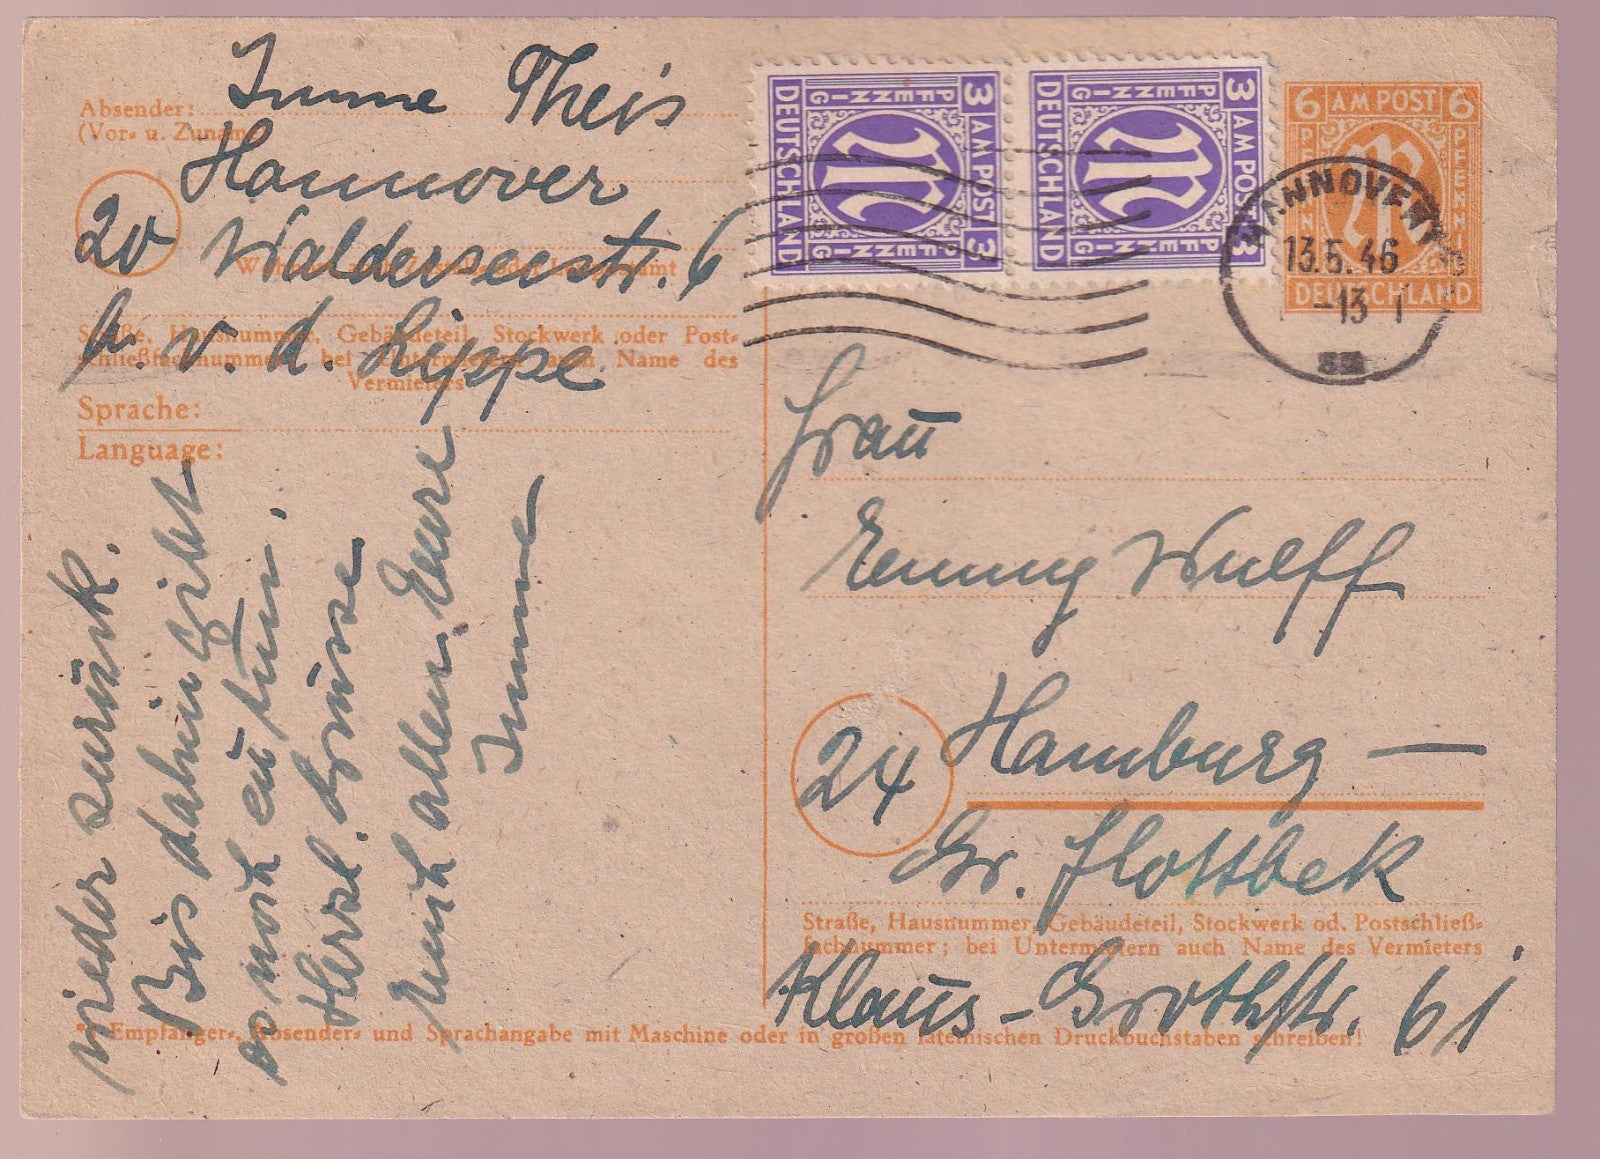 Imme Theis
Absender:
(Vor- u. Zunam
Hannover
20 Walderseestr. 6
b. v. d. Lippe
Straße, Hausnummer, Gebäudeteil, Stockwerk oder Post-
schließfachnummer; bei Untermietern auch Name des
Vermieters
Sprache:
Language:
wieder zurück.
Bis dahin gibt
es noch en
tun.
Herzl. Grüsse
Euch allen Eure
Imme
DEUTSCHLAND
PFENNIG
3 AM POST 3
PFENNIG
DEUTSCHLAND
PFENNIG
3 AM POST 3
PFENNIG
6 AM POST 6
PFENNIG
PFENNIG
DEUTSCHLAND
HANNOVER
13.5.46
-13
Frau
Henning Wulff
24 Hamburg —
Gr. Flottbek
Straße, Hausnummer, Gebäudeteil, Stockwerk od. Postschließ-
fachnummer; bei Untermietern auch Name des Vermieters
Klaus-Grothstr. 61
* Empfänger-, Absender- und Sprachangabe mit Maschine oder in großen lateinischen Druckbuchstaben schreiben!